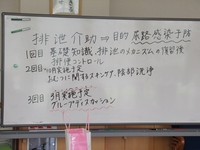 排泄介助 ⇒ 目的 尿路感染予防
1回目 基礎知識、排泄のメカニズムの復習
排便コントロール
2回目 実施予定
おむつに関するスキンケア、陰部洗浄
3回目 3月実施予定
グループディスカッション